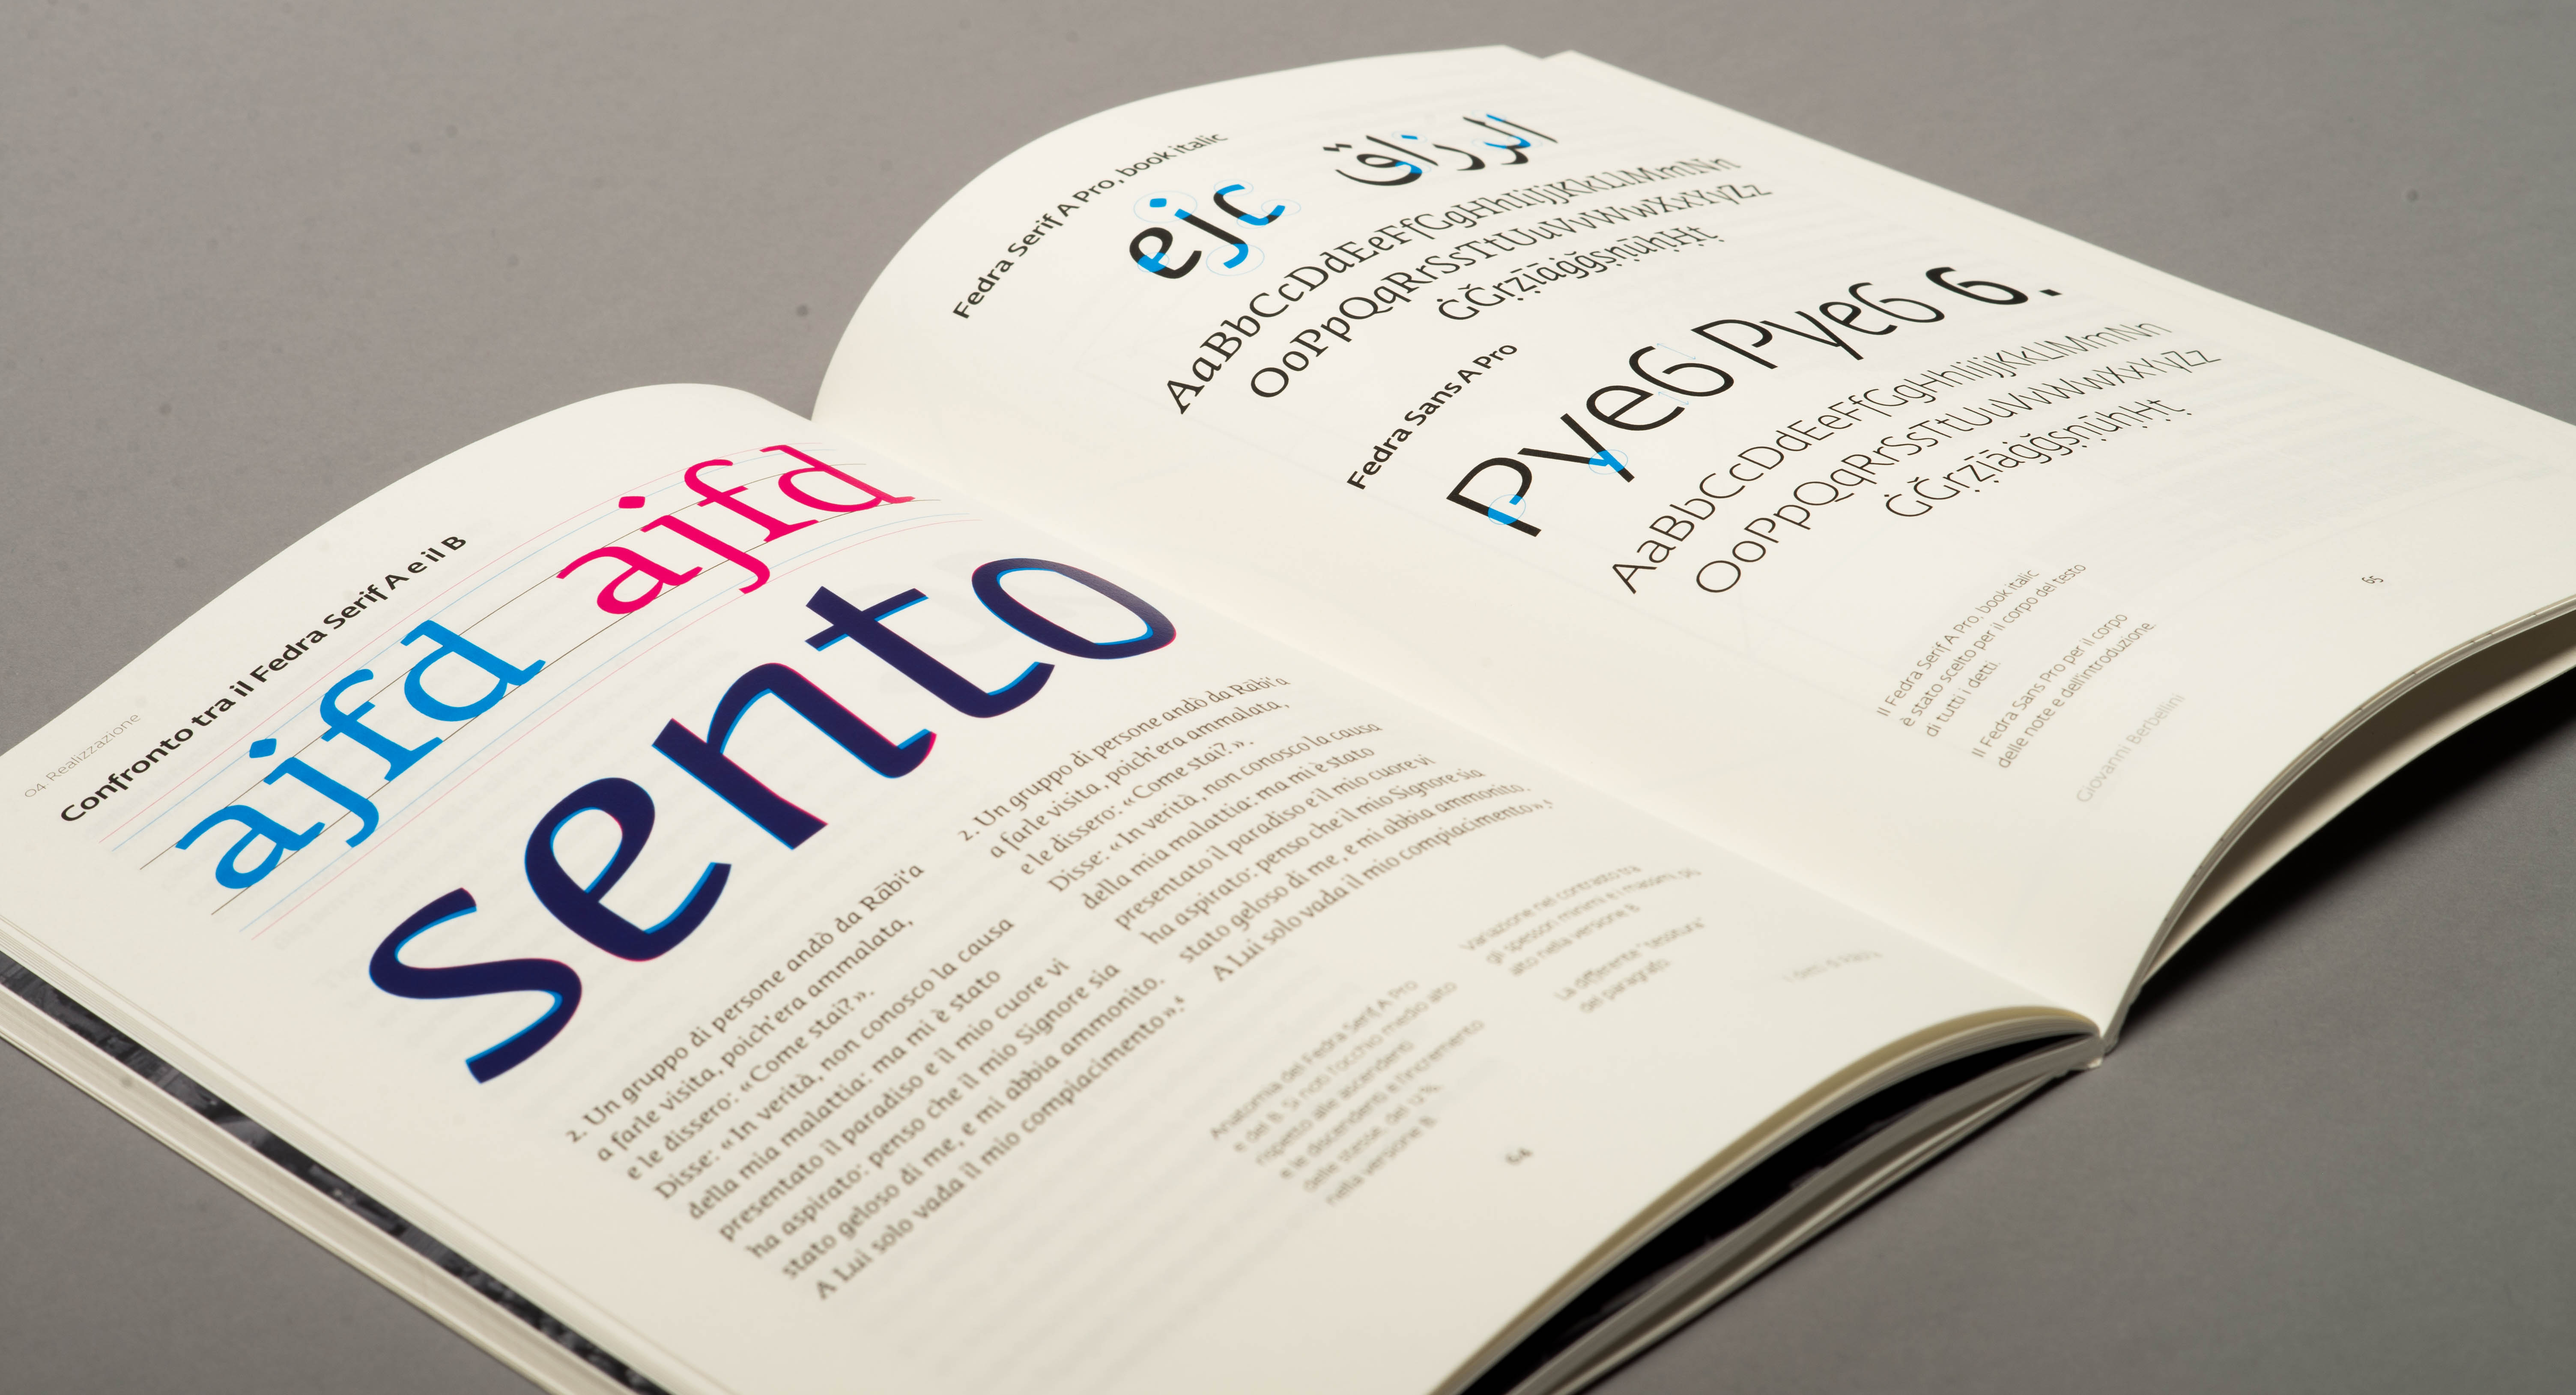 04 Realizzazione
Confronto tra il Fedra Serif A e il B
ajfd ajfd
sento
2. Un gruppo di persone andò da Rābi'a
a farle visita, poich'era ammalata,
e le dissero: «Come stai?».
Disse: «In verità, non conosco la causa
della mia malattia: ma mi è stato
presentato il paradiso e il mio cuore vi
ha aspirato: penso che il mio Signore sia
stato geloso di me, e mi abbia ammonito.
A Lui solo vada il mio compiacimento».⁴
2. Un gruppo di persone andò da Rābi'a
a farle visita, poich'era ammalata,
e le dissero: «Come stai?».
Disse: «In verità, non conosco la causa
della mia malattia: ma mi è stato
presentato il paradiso e il mio cuore vi
ha aspirato: penso che il mio Signore sia
stato geloso di me, e mi abbia ammonito.
A Lui solo vada il mio compiacimento».⁴
Anatomia del Fedra Serif A Pro
e del B. Si noti l'occhio medio alto
rispetto alle ascendenti
e le discendenti e l'incremento
delle stesse, del 12%,
nella versione B.
Variazione nel contrasto tra
gli spessori minimi e i massimi, più
alto nella versione B
La differente "tessitura"
del paragrafo.
64
Fedra Serif A Pro, book italic
ejc الرزاق
AaBbCcDdEeFfGgHhIiJjKkLlMmNn
OoPpQqRrSsTtUuVvWwXxYyZz
ĠĞrẓīāġğsṇūhḥHṭ
Fedra Sans A Pro
Pye6 Pye6 6.
AaBbCcDdEeFfGgHhIiJjKkLlMmNn
OoPpQqRrSsTtUuVvWwXxYyZz
Il Fedra Serif A Pro, book italic
è stato scelto per il corpo del testo
di tutti i detti.
Il Fedra Sans Pro per il corpo
delle note e dell'introduzione.
Giovanni Berbellini
65